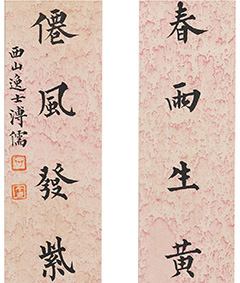 春雨生黄
僊風發紫
西山逸士溥儒